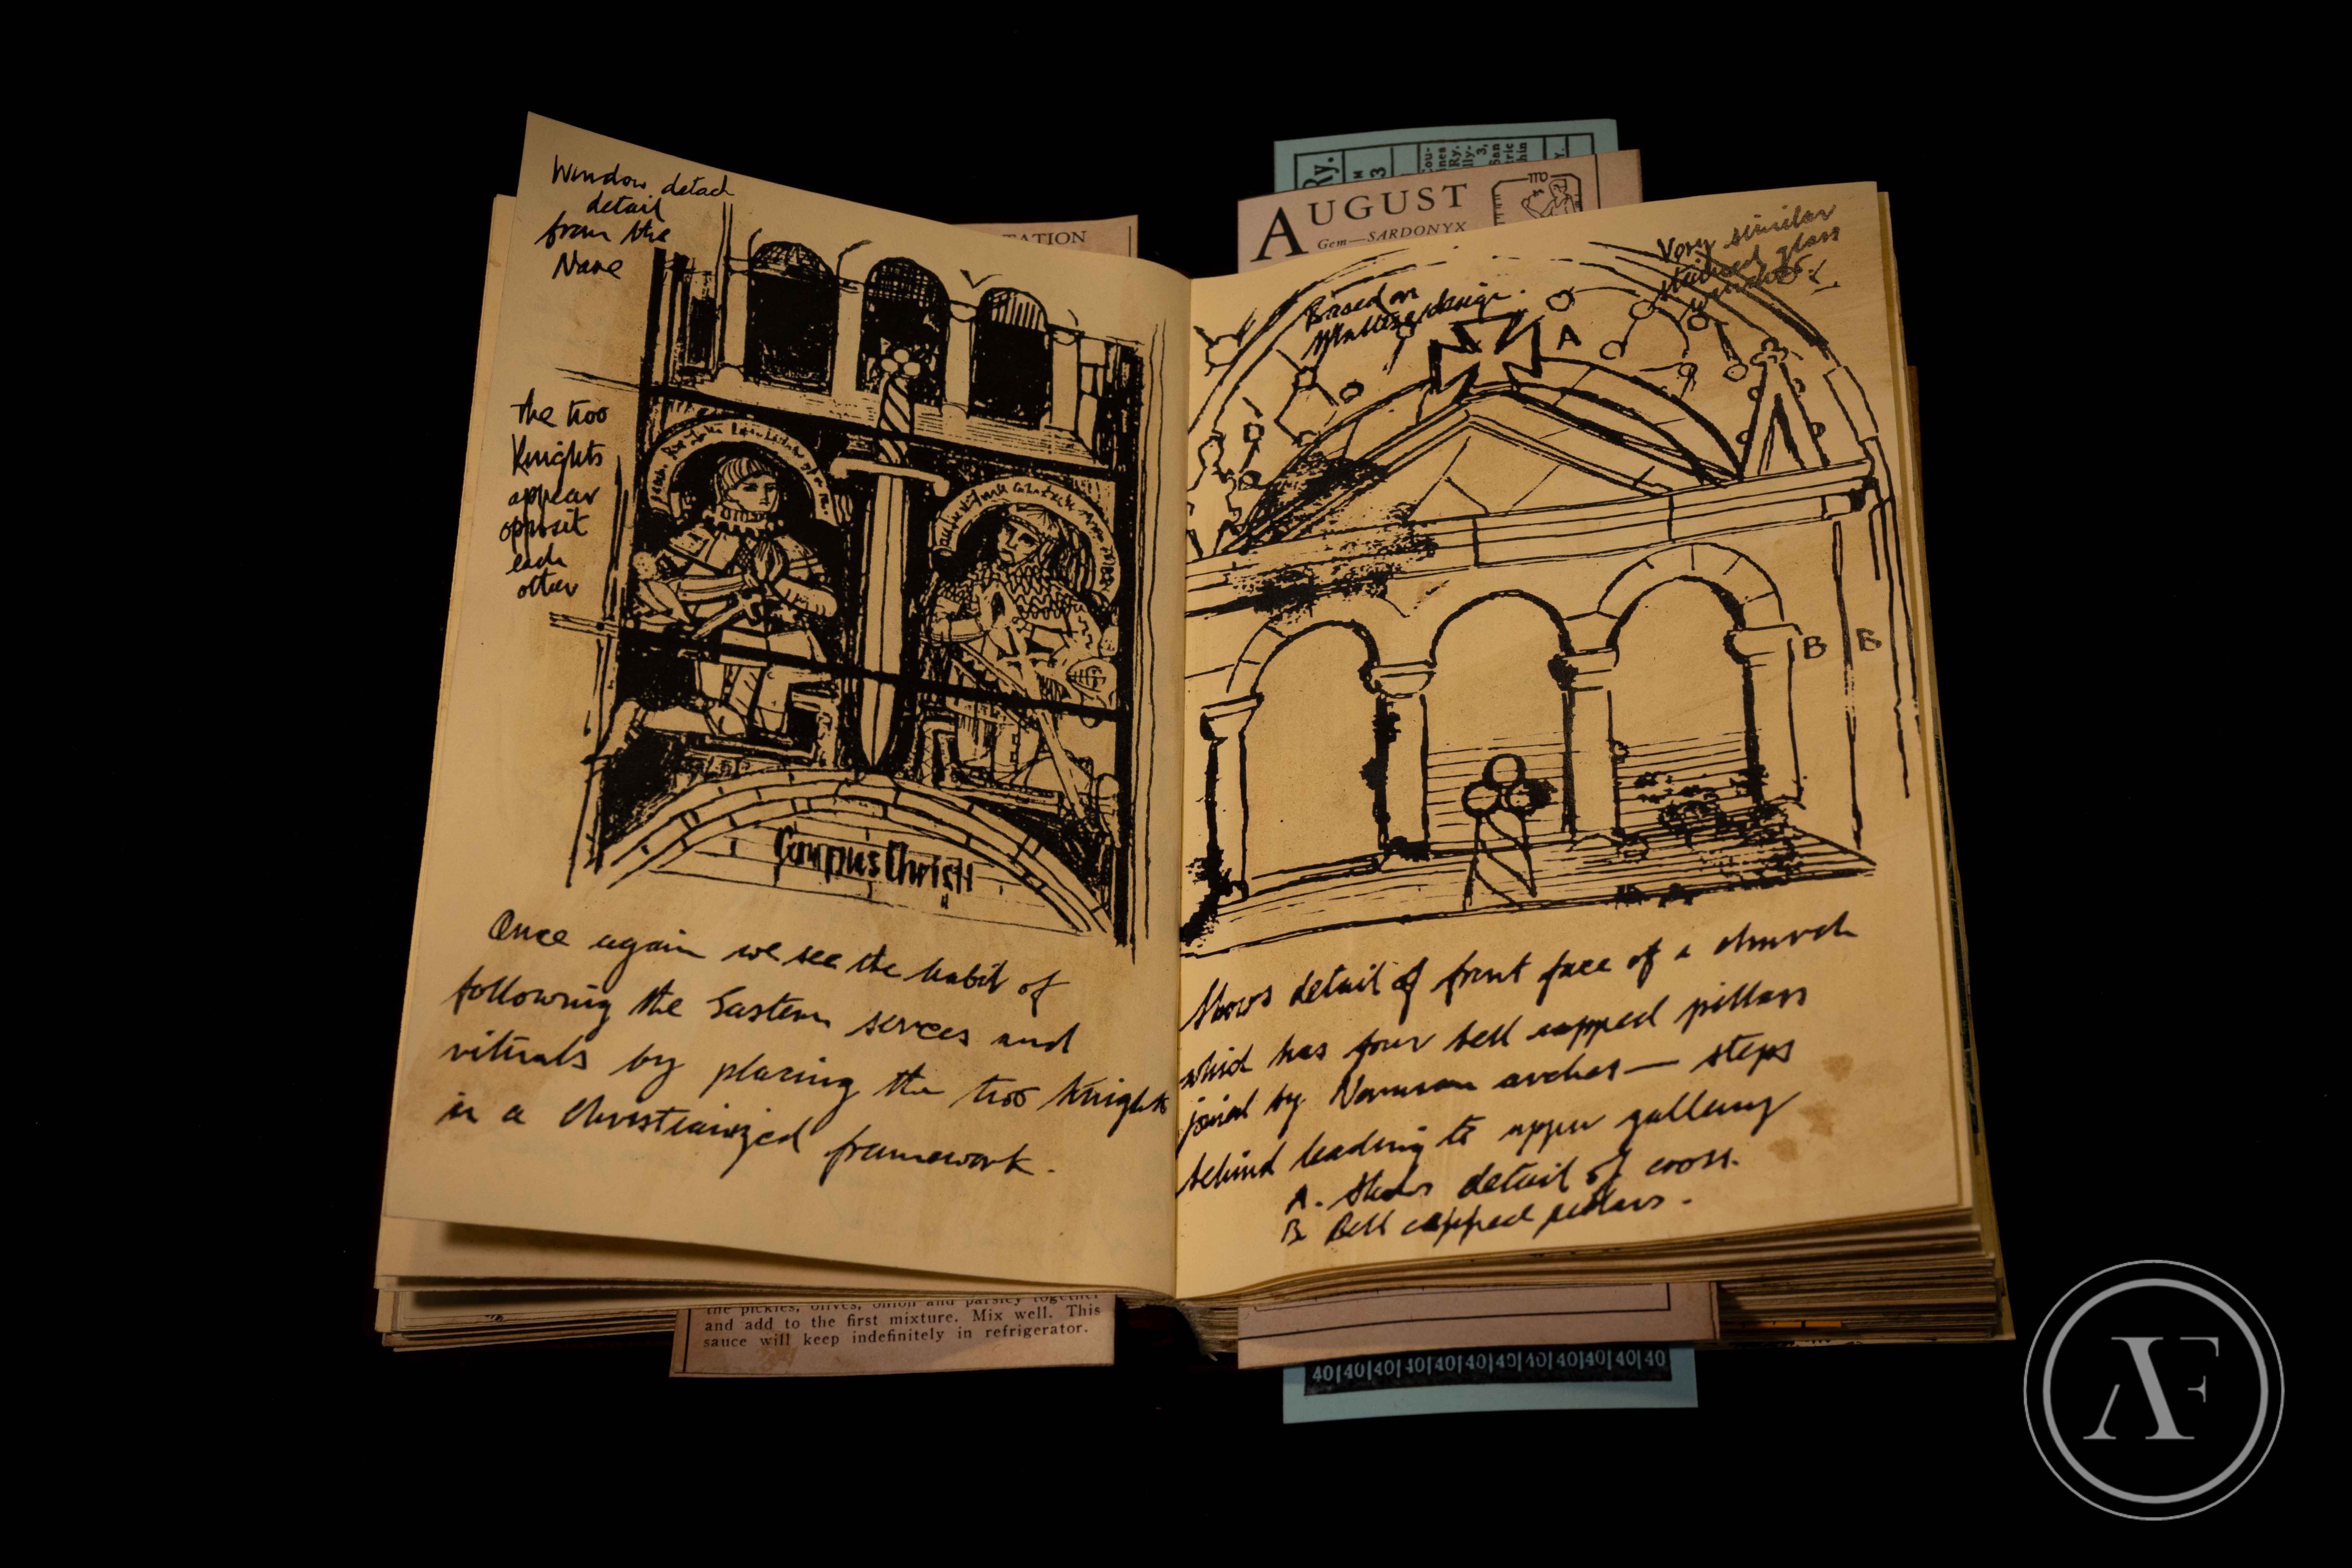 Window detach
detail
from the
Nave
the two
Knights
appear
opposit
each
other
Corpus Christi
Once again we see the habit of
following the Eastern
and
rituals by placing the two Knights
in a Christianized framework.
TATION
the pickles, olives, onion and parsley together
and add to the first mixture. Mix well. This
sauce will keep indefinitely in refrigerator.
Ry.
3
AUGUST
Gem—SARDONYX
Very similar
stained glass
window
Based on
Maltese design.
A
B B
Shows detail of front face of a church
which has four bell capped pillars
joined by Norman arches— steps
behind leading to upper gallery
A. Shows detail of cross.
B Bell capped pillars.
40|40|40|40|40|40|40|40|40|40|40|40
AF